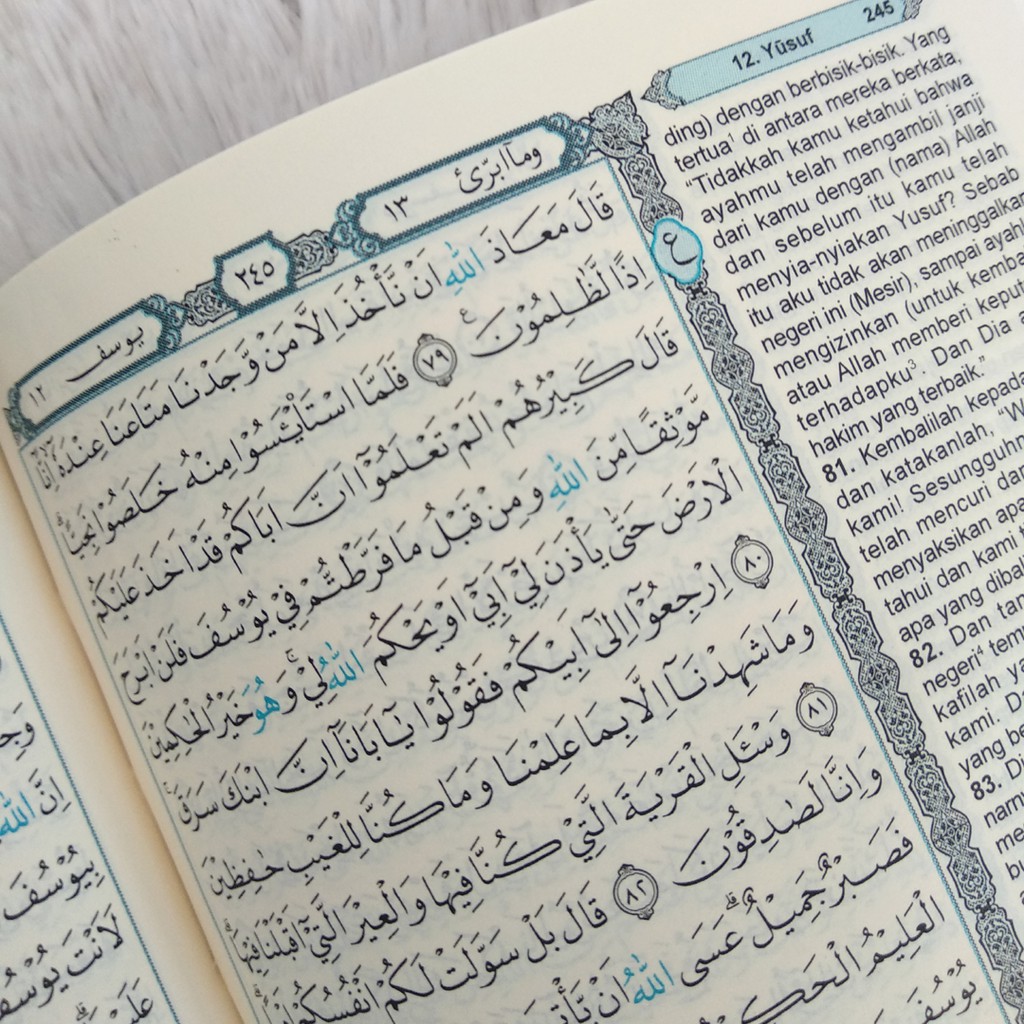 245
12. Yūsuf
وما ابرّئ ١٣
٢٤٥
يوسف ١٢
قَالَ مَعَاذَ اللّٰهِ اَنْ نَّأْخُذَ اِلَّا مَنْ وَّجَدْنَا مَتَاعَنَا عِنْدَهٗٓ اِنَّآ
اِذًا لَّظٰلِمُوْنَ ࣖ ٧٩ فَلَمَّا اسْتَا۟يْـَٔسُوْا مِنْهُ خَلَصُوْا نَجِيًّاۗ
قَالَ كَبِيْرُهُمْ اَلَمْ تَعْلَمُوْٓا اَنَّ اَبَاكُمْ قَدْ اَخَذَ عَلَيْكُمْ
مَّوْثِقًا مِّنَ اللّٰهِ وَمِنْ قَبْلُ مَا فَرَّطْتُّمْ فِيْ يُوْسُفَ فَلَنْ اَبْرَحَ
الْاَرْضَ حَتّٰى يَأْذَنَ لِيْٓ اَبِيْٓ اَوْ يَحْكُمَ اللّٰهُ لِيْۚ وَهُوَ خَيْرُ الْحٰكِمِيْنَ
٨٠ اِرْجِعُوْٓا اِلٰٓى اَبِيْكُمْ فَقُوْلُوْا يٰٓاَبَانَآ اِنَّ ابْنَكَ سَرَقَۚ
وَمَا شَهِدْنَآ اِلَّا بِمَا عَلِمْنَا وَمَا كُنَّا لِلْغَيْبِ حٰفِظِيْنَ
٨١ وَسْـَٔلِ الْقَرْيَةَ الَّتِيْ كُنَّا فِيْهَا وَالْعِيْرَ الَّتِيْٓ اَقْبَلْنَا فِيْهَاۗ
وَاِنَّا لَصٰدِقُوْنَ ٨٢ قَالَ بَلْ سَوَّلَتْ لَكُمْ اَنْفُسُكُمْ
فَصَبْرٌ جَمِيْلٌۗ عَسَى اللّٰهُ اَنْ يَّأْتِيَ
الْعَلِيْمُ الْحَكِيْمُ
يُوْسُفَ
ع
ding) dengan berbisik-bisik. Yang
tertua¹ di antara mereka berkata,
“Tidakkah kamu ketahui bahwa
ayahmu telah mengambil janji
dari kamu dengan (nama) Allah
dan sebelum itu kamu telah
menyia-nyiakan Yusuf? Sebab
itu aku tidak akan meninggalkan
negeri ini (Mesir), sampai ayah
mengizinkan (untuk kemba
atau Allah memberi keput
terhadapku³. Dan Dia a
hakim yang terbaik.”
81. Kembalilah kepada
dan katakanlah, “W
kami! Sesungguhn
telah mencuri dan
menyaksikan apa
tahui dan kami t
apa yang dibal
82. Dan tan
negeri⁴ tem
kafilah ya
kami. Da
yang be
83. Di
nam
me
bu
اِنَّ اللّٰهَ
بِيُوْسُفَ
لَاَنْتَ يُوْسُفُ